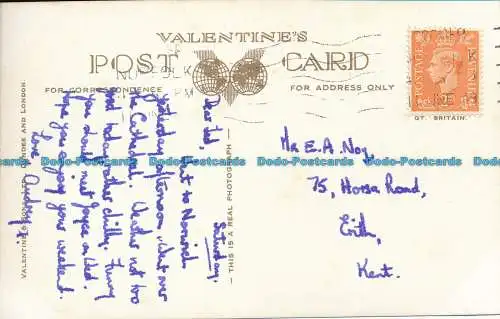 VALENTINE'S
POST CARD
FOR CORRESPONDENCE
FOR ADDRESS ONLY
POSTAGE
GT. BRITAIN.
Saturday.
Dear Ted,
Went to Norwich
yesterday afternoon, went over
the Cathedral. Weather not too
bad today, rather chilly. Funny
you should meet Joyce
hope you enjoy your weekend.
Love
Audrey.
Mr E. A. Noy,
75, Horsa Road,
Erith,
Kent.
— THIS IS A REAL PHOTOGRAPH —
VALENTINE & SONS LTD., DUNDEE AND LONDON.
Dodo-Postcards Dodo-Postcards Dodo-Postcards Dodo-Postcards Dodo-Postcards